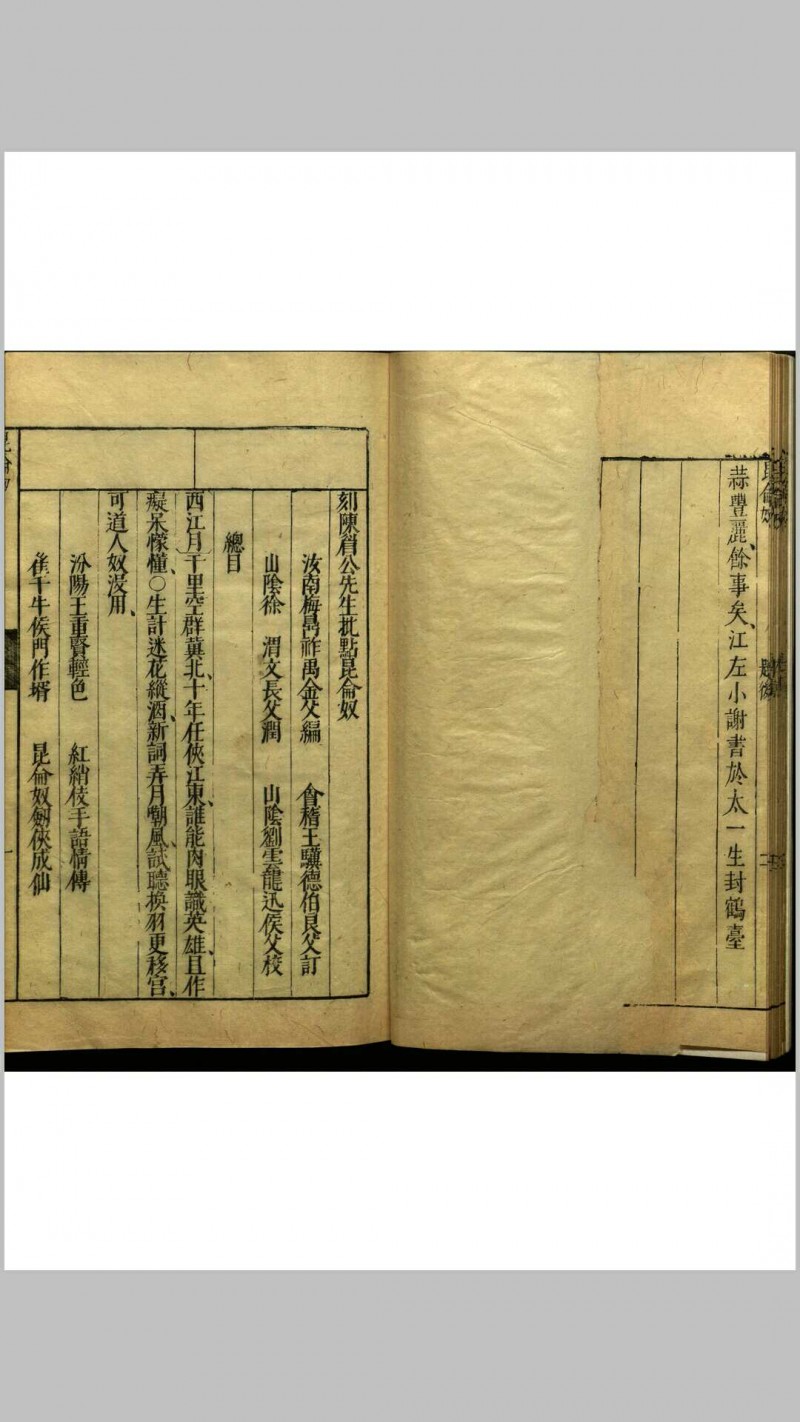 蒜豐麗餘事矣江左小謝書於太一生封鶴臺
刻陳眉公先生批點昆侖奴
汝南梅鼎祚禹金父編　會稽王驥德伯良父訂
山陰徐　渭文長父潤　山陰劉雲龍迅侯父校
總目
西江月〕千里空群冀北、十年任俠江東、誰能肉眼識英雄、且作
癡呆懞懂、○生計迷花縱酒、新詞弄月嘲風、試聽換羽更移宮、
可道人奴沒用、
汾陽王重賢輕色　紅綃伎手語情傳
崔千牛侯門作壻　昆侖奴劍俠成仙